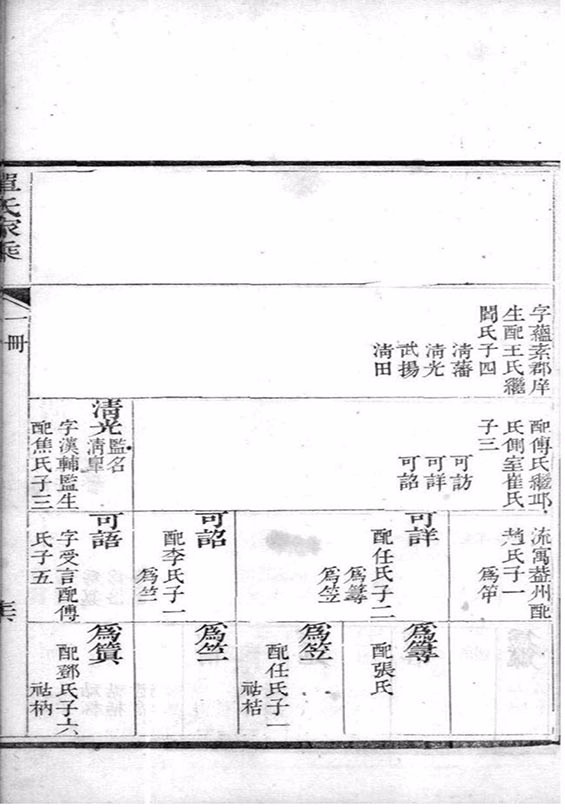 單氏家乘
一冊
字蘊素郡庠
生配王氏繼
閻氏子四
清藩
清光
武揚
清田
配傅氏繼邱
氏側室崔氏
子三
可訪
可詳
可詔
清光
監名
清臯
字漢輔監生
配焦氏子三
流寓益州配
趙氏子一
可詳
配任氏子二
為笠
可詔
配李氏子一
為竺
可語
字受言配傅
氏子五
配張氏
為笠
配任氏子一
祜桔
為竺
為簣
配鄧氏子六
祜柄